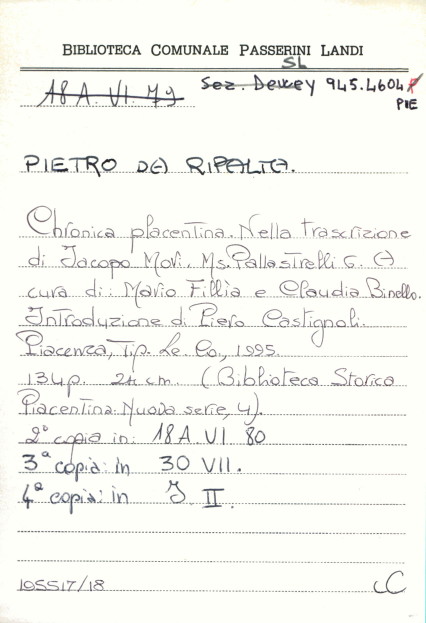 BIBLIOTECA COMUNALE PASSERINI LANDI
SL
18 A. VI. 79 Sez. Dewey 945.4604
PIE
PIETRO DA RIPALTA.
Chronica placentina. Nella trascrizione
di Jacopo Mori. Ms. Pallastrelli 6. A
cura di: Mario Fillia e Claudia Binello.
Introduzione di Piero Castignoli.
Piacenza, Tip. Le Co., 1995.
134p. 24 cm. (Biblioteca Storica
Piacentina. Nuova serie, 4).
2ª copia in: 18 A. VI. 80
3ª copia: in 30 VII.
4ª copia: in J. II.
195517/18 CC